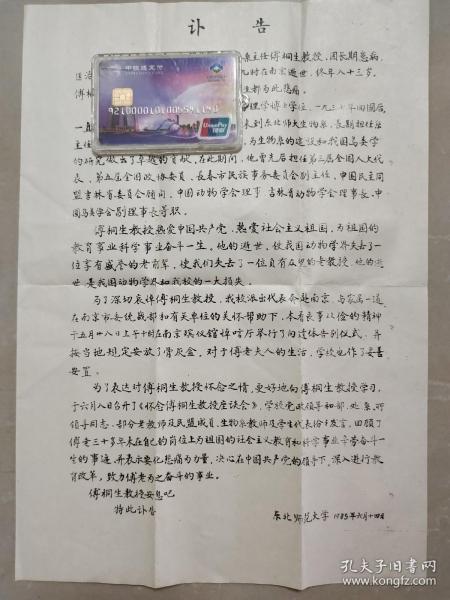 讣 告
系主任傅桐生教授，因长期患病，
医治
九时在南京逝世，终年八十三岁。
傅桐
生都为此悲痛。
理学博士学位，一九三七年回国后，
一直
来到东北师大生物系，长期担任系
主任
为生物系的建设和我国鸟类学
的研究做出了卓越的贡献，在此期间，他曾先后担任第三届全国人大代
表，第五届全国政协委员，长春市民族事务委员会副主任，中国民主同
盟吉林省委员会顾问，中国动物学会理事，吉林省动物学会理事长、中
国鸟类学会副理事长等职。
傅桐生教授热爱中国共产党，热爱社会主义祖国，为祖国的
教育事业科学事业奋斗一生，他的逝世，使我国动物学界失去了一
位享有盛誉的老前辈，使我们失去了一位负有众望的老教授，他的逝
世，是我国动物学界和我校的一大损失。
为了深切哀悼傅桐生教授，我校派出代表奔赴南京，与家属一道
在南京市委统战部和有关单位的关怀帮助下，本着丧事从俭的精神
于五月廿八日上午十时在南京殡仪馆悼唁厅举行了向遗体告别仪式，并
按当地规定安放了骨灰盒，对于傅老夫人的生活，学校也作了妥善
安置。
为了表达对傅桐生教授怀念之情，更好地向傅桐生教授学习，
于六月八日召开了《怀念傅桐生教授座谈会》，学校党政领导和部、处、系、所
领导同志、部分老教师及民盟成员，生物系教师及学生代表纷纷发言，回顾了
傅老三十多年来在自己的岗位上为祖国的社会主义教育和科学事业辛劳奋斗一
生的事迹，并表示要化悲痛为力量，决心在中国共产党的领导下，深入进行教
育改革，致力傅老为之奋斗的事业。
傅桐生教授安息吧
特此讣告
东北师范大学 1985年六月十四日
中国银支付
UnionPay
银联
孔夫子旧书网
www.kongfz.com